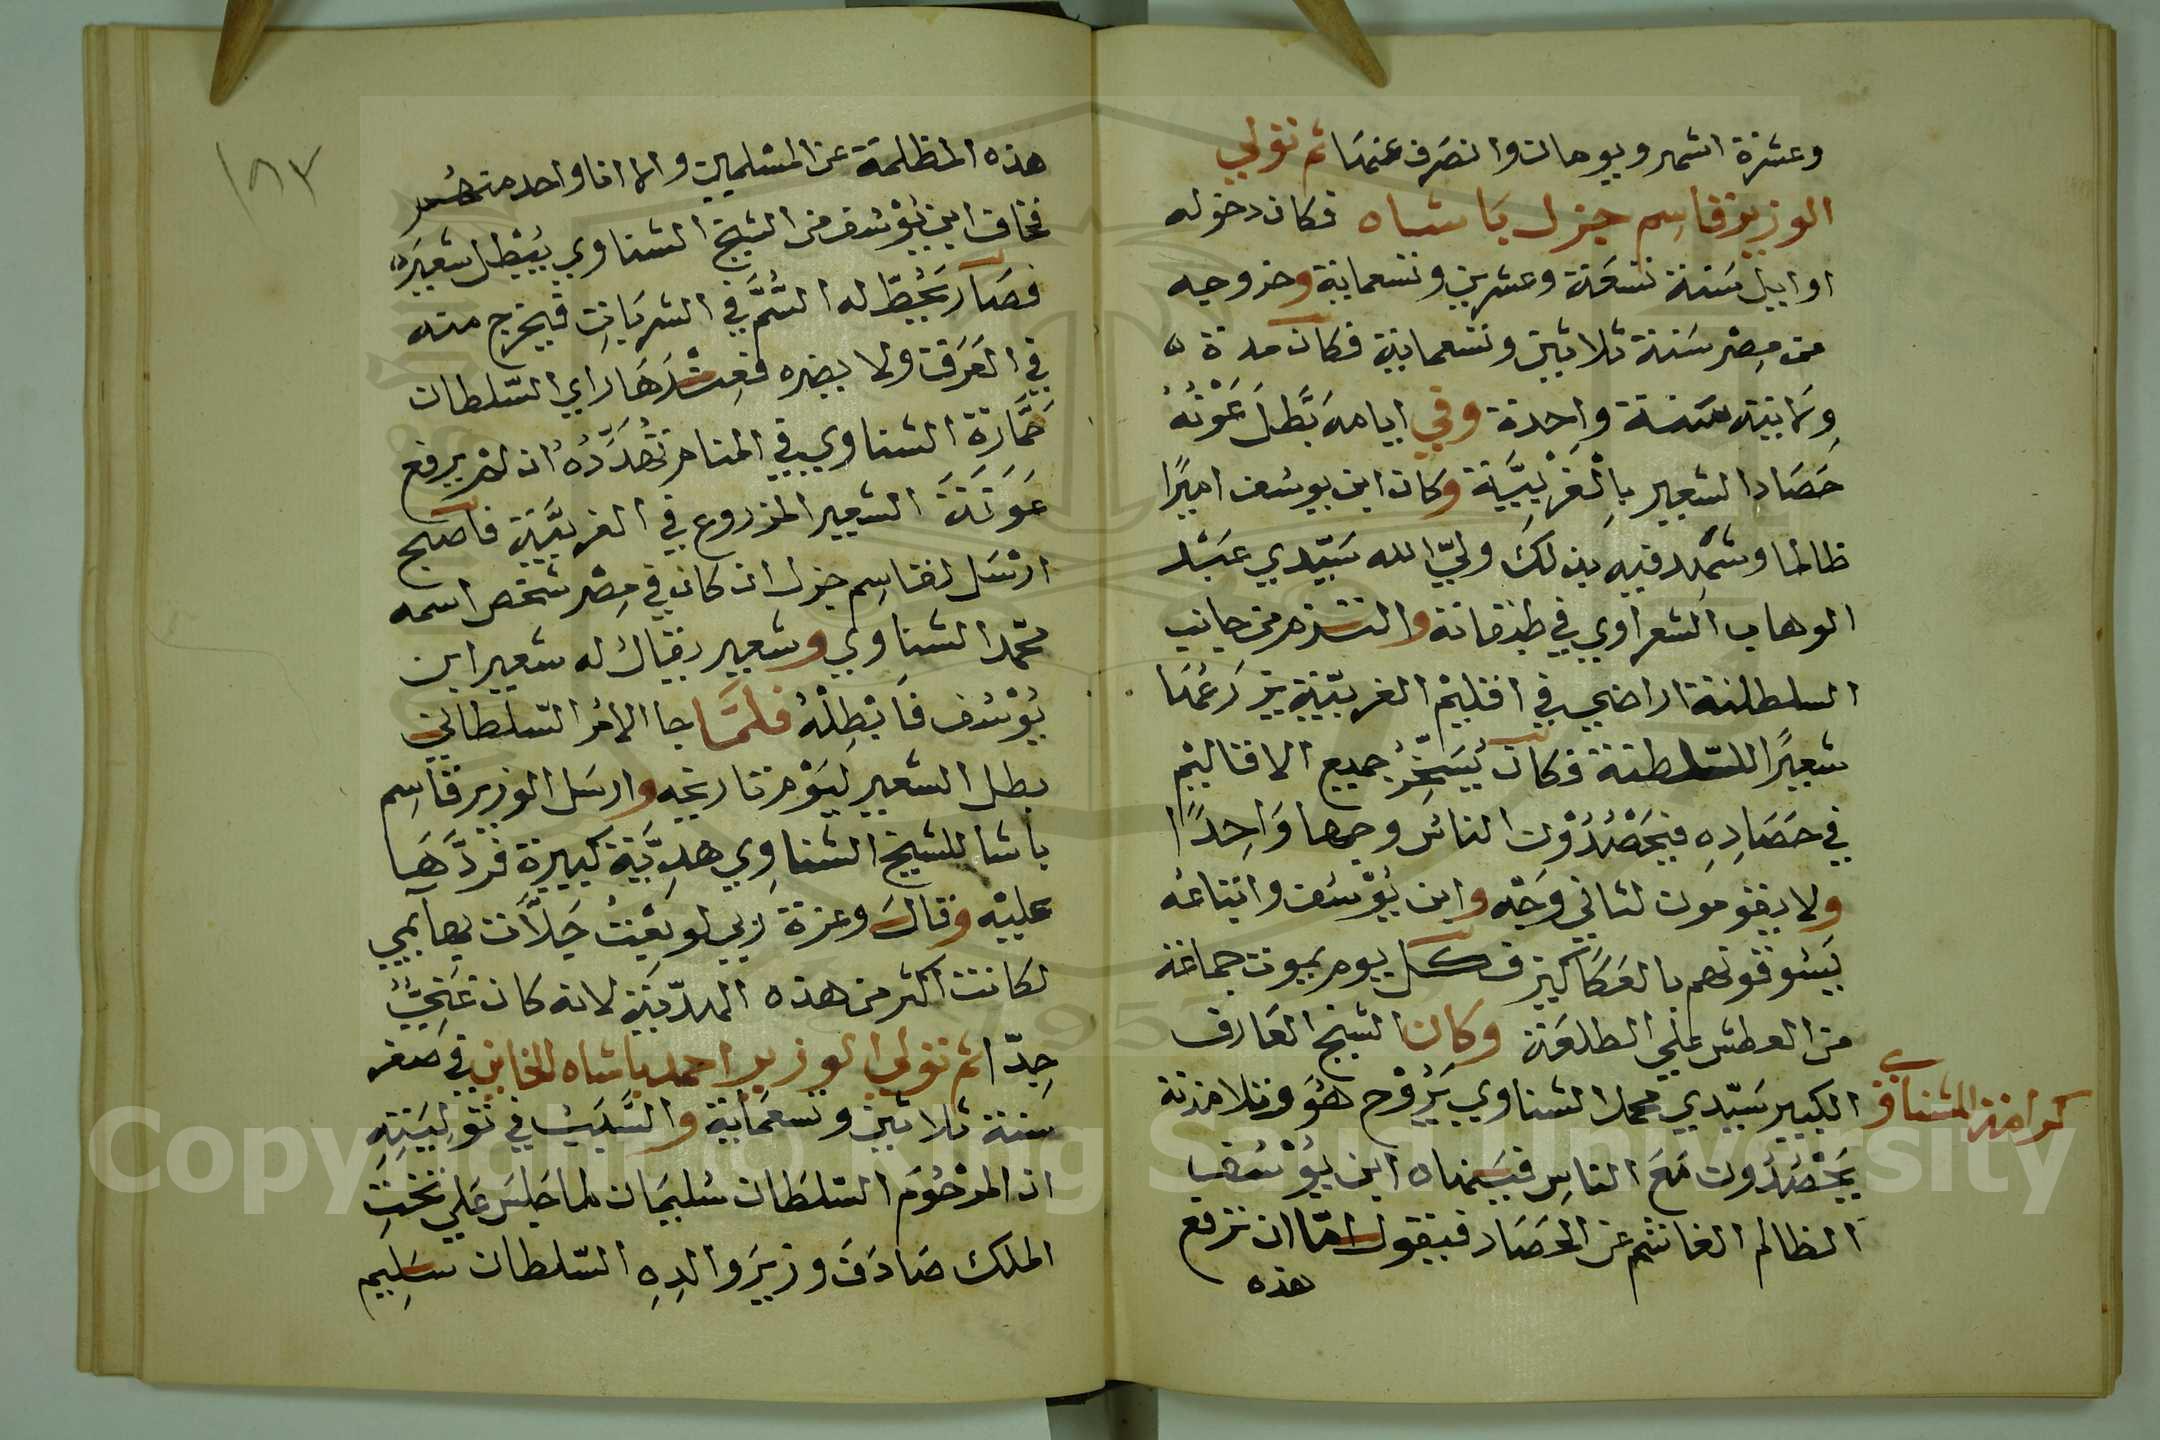 وعشرة اشهر ويومان وانصرف عنها ثم تولي
الوزير قاسم جزل باشاه فكان دخوله
اوايل سنة تسعة وعشرين وتسعماية وخروجه
من مصر سنة ثلاثين وتسعماية فكان مدة
ولايته سنة واحدة وفي ايامه بَطَلَ عَوْنَهُ
حَصَاد الشعير بِالْغَرْبِيَّة وكان ابن يوسف اميرًا
ظالما وشهد فيه بذلك وليّ الله سَيّدي عبد
الوهاب الشعراوي في طبقاته والتزم من جانب
السلطنة اراضي في اقليم الغربيّة يزرعها
شعيرًا للسلطنة فكان يُسَخِّرُ جميع الاقاليم
في حَصَادِهِ فيَحْصُدُوْن الناس وجها وَاحِدًا
ولا يقومون لثاني وَجْه وابن يُوْسُف واتباعه
يَسُوقونهم بالعَكَاكيز فكل يوم يموت جماعة
من العطش علي الطلعة وكان الشيخ العَارف
الكبير سَيّدي محمد الشناوي يَرُوْح هُوَ وتلامذته
كرامة للشناوي
يَحْصُدُون مَعَ الناسِ فيَمنعاه ابن يُوْسُف
الظالم الغاشم عن الحَصَاد فيقول امّا ان ترفع
هذه
١٨٣
هذه المظلمة عن المسلمين والا انا واحد منهم
فخاف ابن يُوْسُف من الشيخ الشناوي يُبْطِل شعيره
فصَار يَحُطّ له السُّمَّ في الشربَاتِ فيخرج منه
في العَرَق ولا يضره فعِنْدَهَا راي السّلطان
حَمَّارَةَ الشناوي في المنام تُهَدِّدُهُ ان لم يرفع
عَوَنَةَ الشعير المزروع في الغربيَّة فاصبح
ارسَل لقاسِم جزل ان كان في مِصْر شخص اسمه
محمد الشناوي وشعير يقال له شعير ابن
يُوْسُف فَابْطِلْهُ فلمَّا جا الامر السّلطاني
بطل الشعير ليَوْم تاريخه وارسَل الوزير قاسِم
باشا للشيخ الشناوِي هدِيَّة كبيرة فردَّهَا
عليْه وقال وعزة ربي لو بِعْتُ جَلَّات بهايمي
لكانت اكثر من هذه الهدّية لانه كان غَنِيًّ
جِدّا ثم تولي الوزير احمد باشاه الخاين في صفر
سنة ثلاثين وتسعمَاية والسَّبَبُ في تولِيَتِهِ
ان المرْحُوْمَ السّلطَان سُليمَان لما جلسَ عَلي تخْتِ
الملك صَادَفَ وزيرَ والدِهِ السّلطان سَلِيم